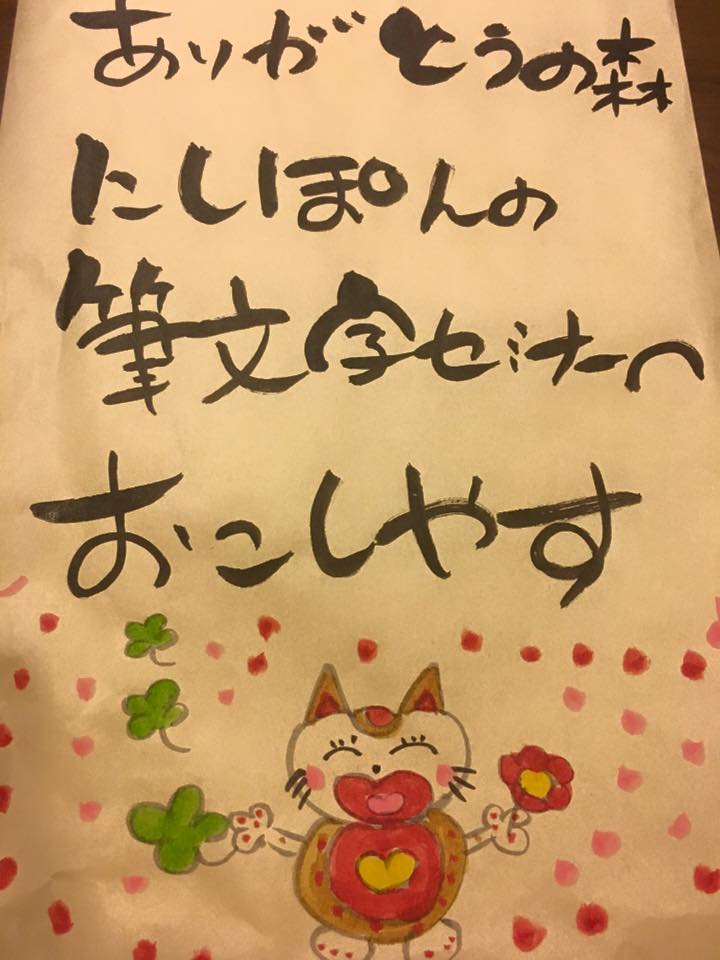 ありがとうの森
にしぽんの
筆文字セミナーへ
おこしやす